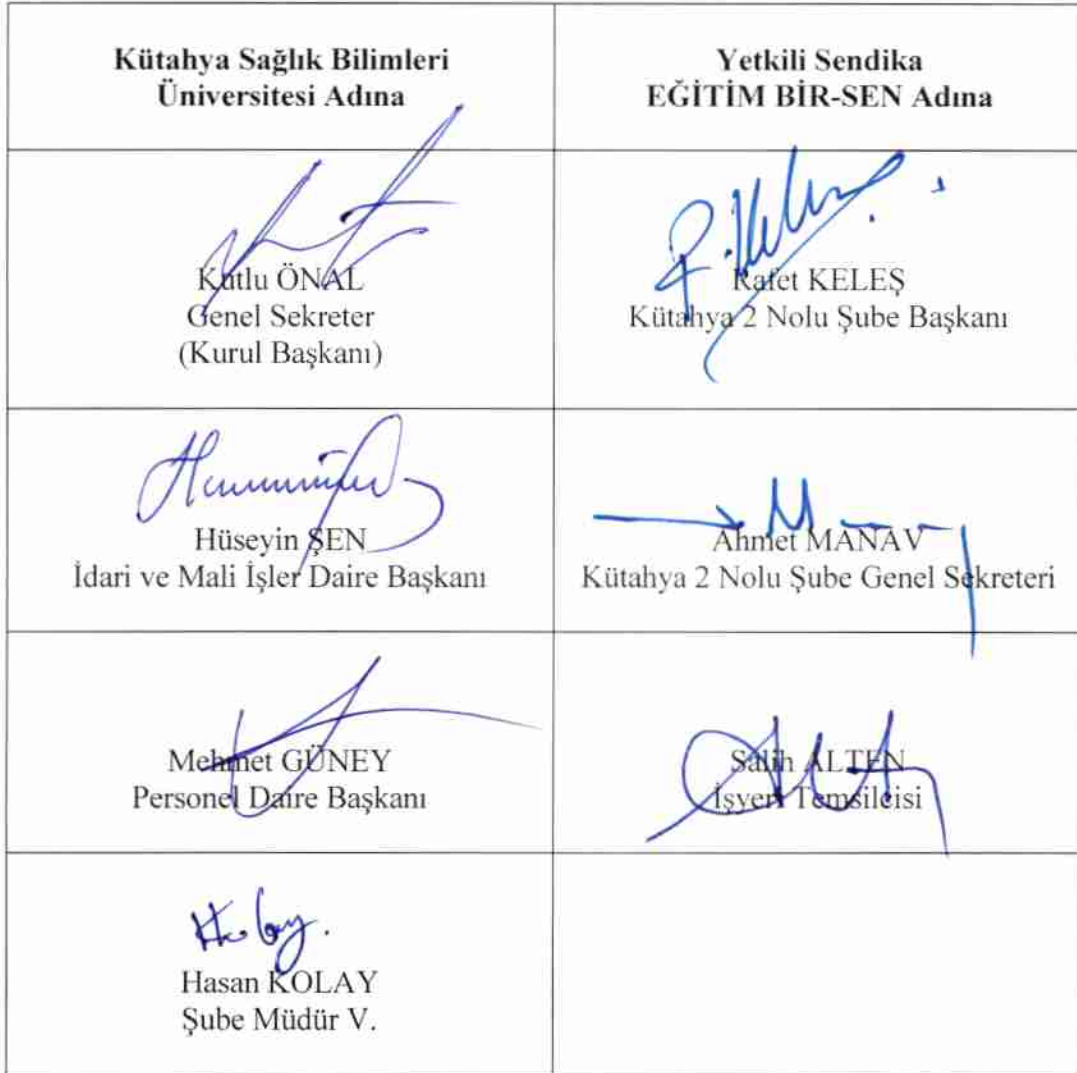 Kütahya Sağlık Bilimleri
Üniversitesi Adına
Yetkili Sendika
EĞİTİM BİR-SEN Adına
Kutlu ÖNAL
Genel Sekreter
(Kurul Başkanı)
Rafet KELEŞ
Kütahya 2 Nolu Şube Başkanı
Hüseyin ŞEN
İdari ve Mali İşler Daire Başkanı
Ahmet MANAV
Kütahya 2 Nolu Şube Genel Sekreteri
Mehmet GÜNEY
Personel Daire Başkanı
Salih ALTEN
İşyeri Temsilcisi
Hasan KOLAY
Şube Müdür V.